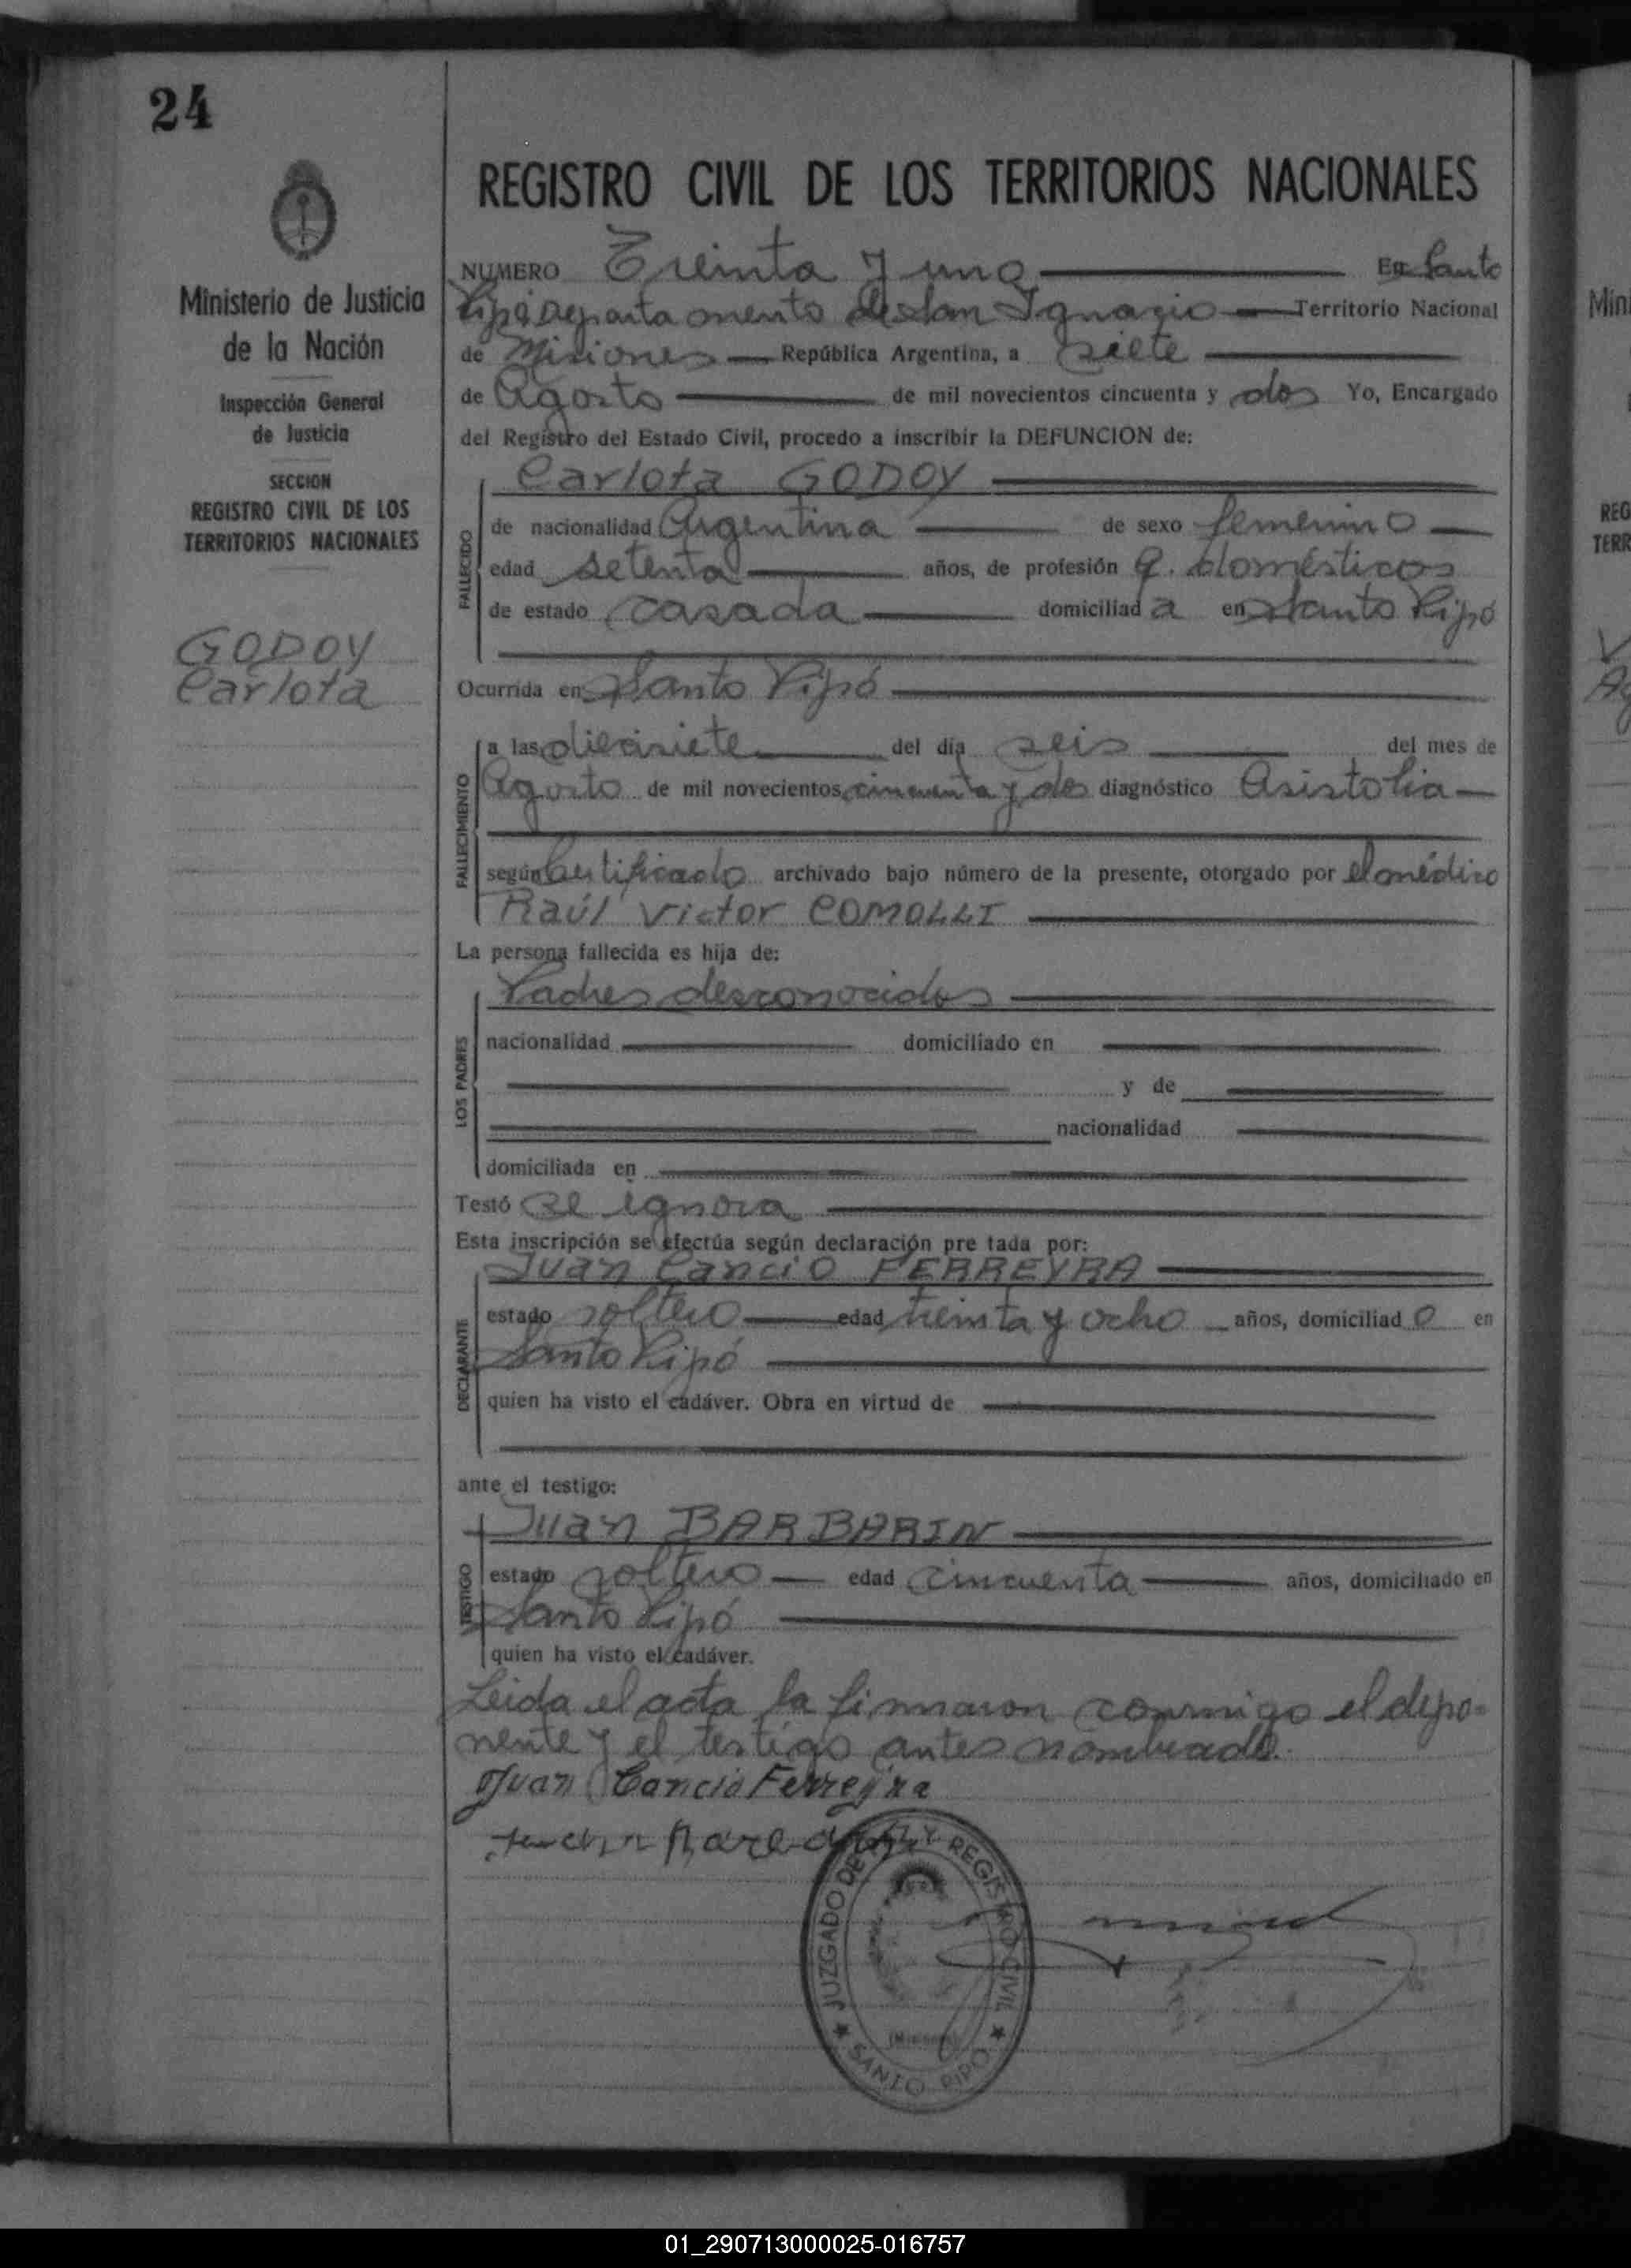 24
Ministerio de Justicia
de la Nación
Inspección General
de Justicia
SECCION
REGISTRO CIVIL DE LOS
TERRITORIOS NACIONALES
GODOY
Carlota
REGISTRO CIVIL DE LOS TERRITORIOS NACIONALES
NUMERO Treinta y uno En Santo
Pipó departamento de San Ignacio Territorio Nacional
de Misiones República Argentina, a siete
de Agosto de mil novecientos cincuenta y dos Yo, Encargado
del Registro del Estado Civil, procedo a inscribir la DEFUNCION de:
Carlota GODOY
FALLECIDO
de nacionalidad Argentina de sexo femenino
edad setenta años, de profesión q. domésticos
de estado casada domiciliad a en Santo Pipó
Ocurrida en Santo Pipó
FALLECIMIENTO
a las diecisiete del día seis del mes de
Agosto de mil novecientos cincuenta y dos diagnóstico Asistolia
según Certificado archivado bajo número de la presente, otorgado por el médico
Raúl Victor COMOLLI
La persona fallecida es hija de:
LOS PADRES
Padres desconocidos
nacionalidad domiciliado en
y de
nacionalidad
domiciliada en
Testó se ignora
Esta inscripción se efectúa según declaración pre tada por:
Juan Cancio FERREYRA
DECLARANTE
estado soltero edad treinta y ocho años, domiciliad o en
Santo Pipó
quien ha visto el cadáver. Obra en virtud de
ante el testigo:
Juan BARBARIN
TESTIGO
estado soltero edad cincuenta años, domiciliado en
Santo Pipó
quien ha visto el cadáver.
Leida el acta la firmaron conmigo el depo-
nente y el testigo antes nombrado.
Juan Cancio Ferreyra
JUZGADO DE PAZ Y REGISTRO CIVIL
(Misiones)
SANTO PIPO
Min
REG
TERR
01_290713000025-016757